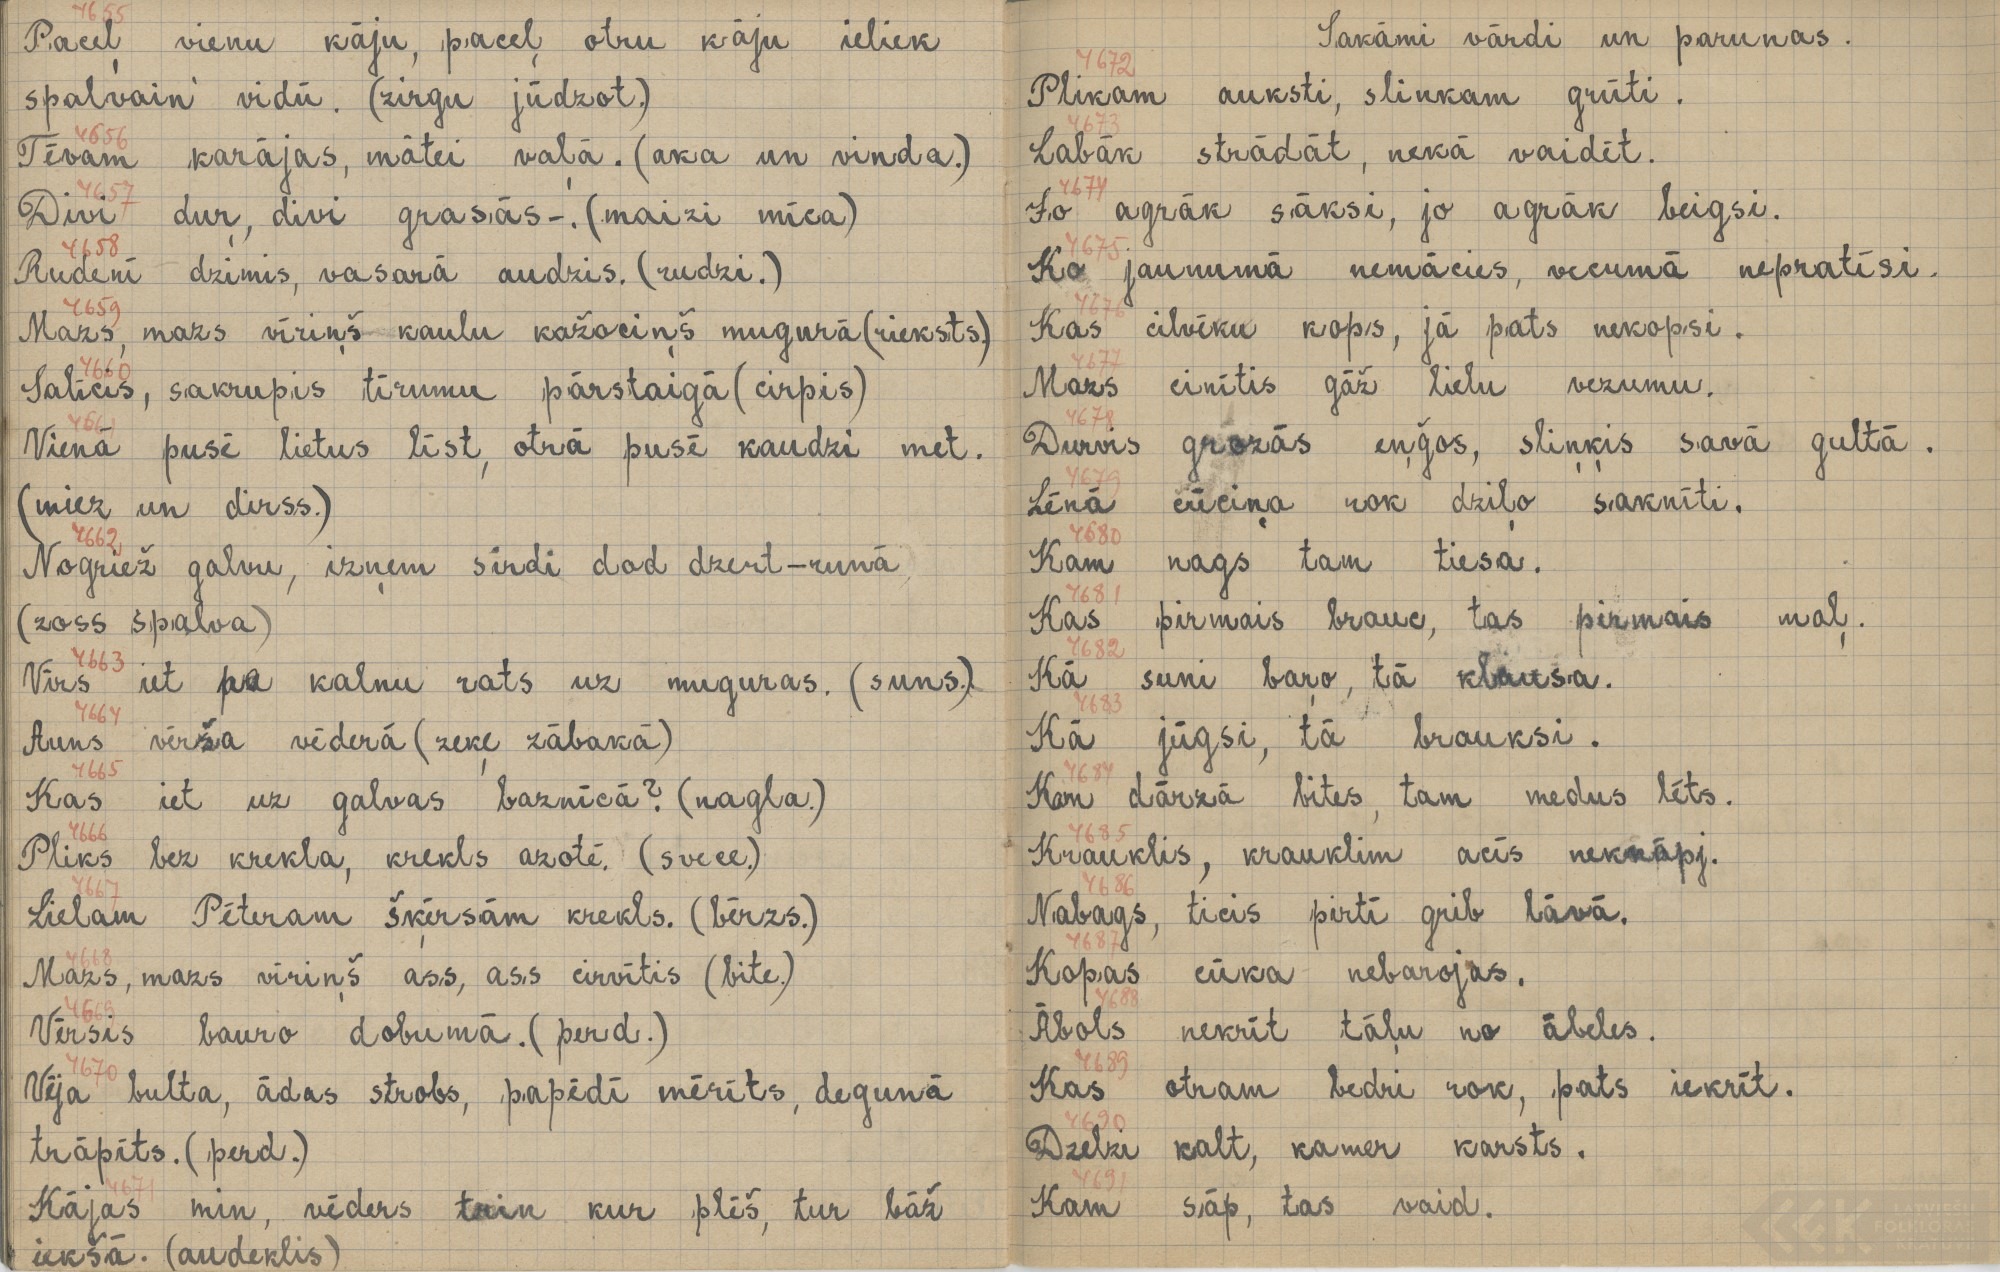 4655
Paceļ vienu kāju, paceļ otru kāju ieliek
spalvain' vidū. (zirgu jūdzot.)
4656
Tēvam karājas, mātei vaļā. (aka un vinda.)
4657
Divi duŗ, divi grasās-. (maizi mīca)
4658
Rudenī dzimis, vasarā audzis. (rudzi.)
4659
Mazs, mazs vīriņš kaulu kažociņš mugurā (rieksts.)
4660
Salīcis, sakrupis tīrumu pārstaigā (cirpis)
4661
Vienā pusē lietus līst, otrā pusē kaudzi met.
(miez un dirss.)
4662
Nogriež galvu, izņem sirdi dod dzert-runā
(zoss spalva)
4663
Vīrs iet pa kalnu rats uz muguras. (suns.)
4664
Auns vērša vēderā (zeķe zābakā)
4665
Kas iet uz galvas baznīcā? (nagla.)
4666
Pliks bez krekla, krekls azotē. (svece.)
4667
Lielam Pēteram šķērsām krekls. (bērzs.)
4668
Mazs, mazs vīriņš ass, ass cirvītis (bite.)
4669
Vērsis bauro dobumā. (perd.)
4670
Vēja bulta, ādas strobs, papēdī mērīts, degunā
trāpīts. (perd.)
4671
Kājas min, vēders trin kur plēš, tur bāž
iekšā. (audeklis)
Sakāmi vārdi un parunas.
4672
Plikam auksti, slinkam grūti.
4673
Labāk strādāt, nekā vaidēt.
4674
Jo agrāk sāksi, jo agrāk beigsi.
4675
Ko jaunumā nemācies, vecumā nepratīsi.
4676
Kas cilvēku kops, jā pats nekopsi.
4677
Mazs cinītis gāž lielu vezumu.
4678
Durvis grozās eņģos, sliņķis savā gultā.
4679
Lēnā cūciņa rok dziļo saknīti.
4680
Kam nags tam tiesa.
4681
Kas pirmais brauc, tas pirmais maļ.
4682
Kā suni baŗo, tā klausa.
4683
Kā jūgsi, tā brauksi.
4684
Kam dārzā bites, tam medus lēts.
4685
Krauklis, krauklim acīs neknāpj.
4686
Nabags, ticis pirtī grib lāvā.
4687
Kopas cūka nebarojas.
4688
Ābols nekrīt tāļu no ābeles.
4689
Kas otram bedri rok, pats iekrīt.
4690
Dzelzi kalt, kamer karsts.
4691
Kam sāp, tas vaid.